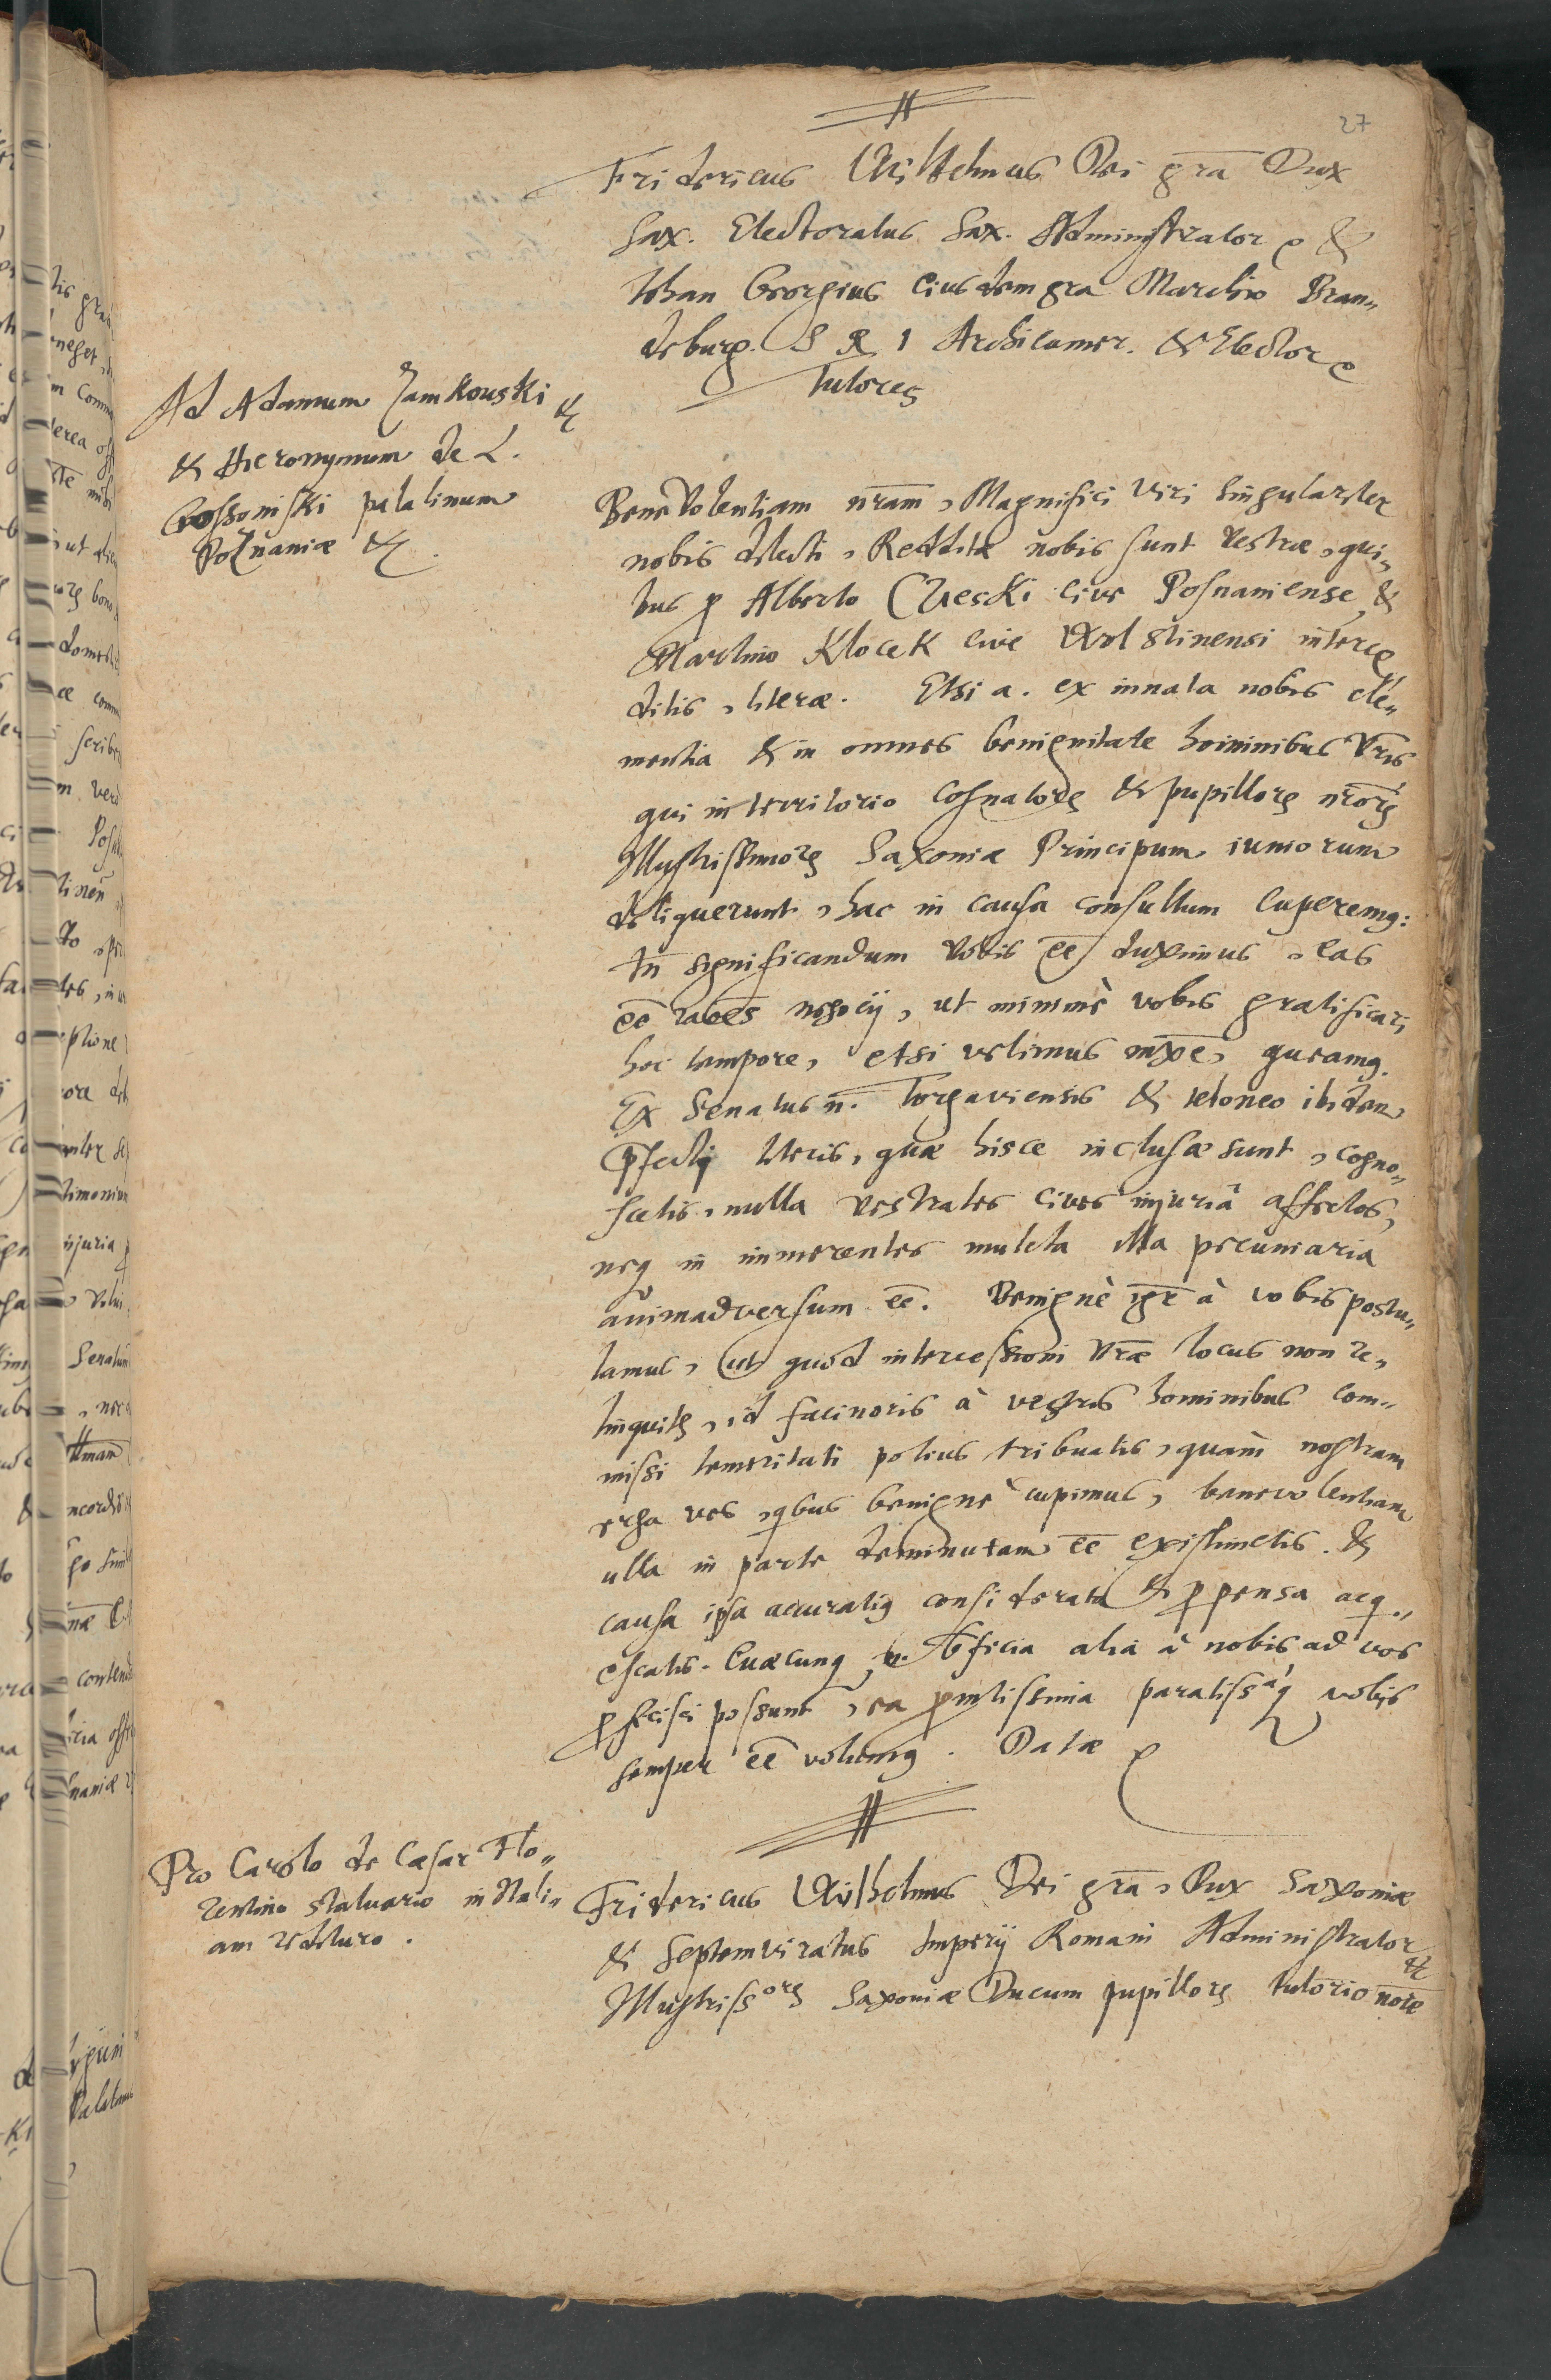 27
Fridericus Wilhelmus Dei gra Dux
Sax. Electoratus Sax. Administrator &
Iohan Georgius eiusdem gra Marchio Bran„
deburg. S R I Archicamer. & Elector
Tutores
Ad Adamum Zamkouski &
& Hieronymum de L.
Gossoniski palatinum
Poznaniæ &.
Benevolentiam nram, Magnifici Viri singulariter
nobis dilecti, Redditæ nobis sunt vestræ, qui„
bus p Alberto Czeski cive Posnaniense, &
Martino Klocek cive Wolstinensi interce
ditis, literæ. Etsi a. ex innata nobis cle„
mentia & in omnes benignitate hominibus vris
qui in territorio Cognatorȝ & pupillorȝ nrorȝ
Illustrissimorȝ Saxoniæ Principum iuniorum
deliquerunt, hac in causa consultum cuperemq:
tn significandum vobis ee duximus, eas
ee raoes negocij, ut minimè vobis gratificari
hoc tempore, etsi velimus mxe, queamq.
Ex Senatus n. Torgaviensis & teloneo ibidem
pfecti literis, quæ hisce inclusæ sunt, cogno„
scetis, nulla vestrates cives injuriâ affectos,
neq in immerentes mulcta illa pecuniaria
animadversum ee. Benignè igr à vobis postu„
lamus, ut quod intercessioni vræ locus non re„
linquitȝ, id facinoris à vestris hominibus com„
missi temeritati potius tribuatis, quàm nostram
erga vos, qbus benignè cupimus, benevolentiam
ulla in parte deminutam ee existimetis. &
causa ipsa accuratiq considerata & ppensa acq„
escatis. Cuæcunq n. officia alia à nobis ad vos
pficisci possunt, ea pmtissima paratissaq vobis
semper ee volumq. Datæ
Pro Carolo de Cæsar Flo„
rentino statuario in Itali„
am redituro.
Fridericus Wilhelmus Dei gra, Dux Saxoniæ
& Septemviratus Imperij Romani Administrator &
Illustrissorȝ Saxoniæ Ducum pupillorȝ tutorio noie